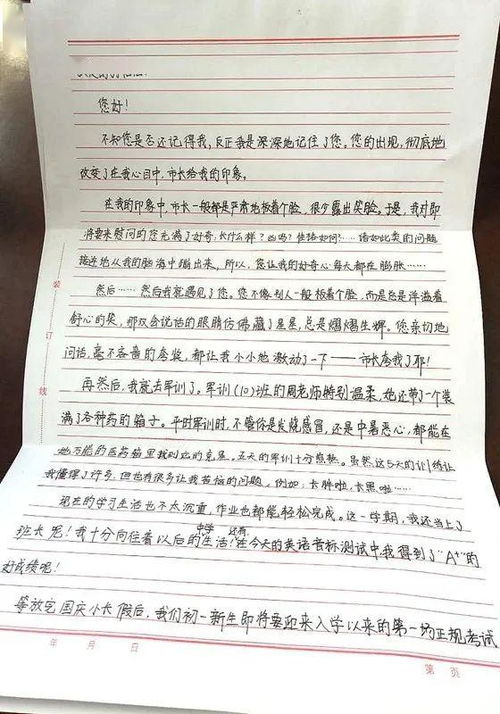 您好！
不知您是否还记得我，反正我是深深地记住了您。您的出现，彻底地
改变了在我心目中，市长给我的印象。
在我的印象中，市长一般都是严肃地板着个脸，很少露出笑脸。于是，我对即
将要来慰问的您充满了好奇，长什么样？凶吗？性格如何？……诸如此类的问题
接连地从我的脑海中蹦出来。所以，您让我的好奇心每天都在膨胀……
然后……然后我就遇见了您。您不像别人一般板着个脸，而是总是洋溢着
舒心的笑，那双会说话的眼睛仿佛藏了星星，总是熠熠生辉。您亲切地
问话，毫不吝啬的夸奖，都让我小小地激动了一下——市长夸我了耶！
再然后，我就去军训了。军训（10）班的周老师特别温柔，她还带了一个装
满了各种药的箱子。平时军训时，不管你是发烧感冒，还是中暑恶心，都能在
她万能的医药箱里找到对应的克星。五天的军训十分煎熬。虽然这5天的训练让
我懂得了许多，但也有很多让我苦恼的问题，例如：长胖啦，长黑啦……
现在的学习生活也不太沉重，作业也都能轻松完成。这一学期，我还当上了
班长呢！我十分向往着以后的中学生活！还有，在今天的英语音标测试中，我得到了"A+"的
好成绩呢！
等放完国庆小长假后，我们初一新生即将要迎来入学以来的第一场正规考试
装
订
线
年 月 日
第 页